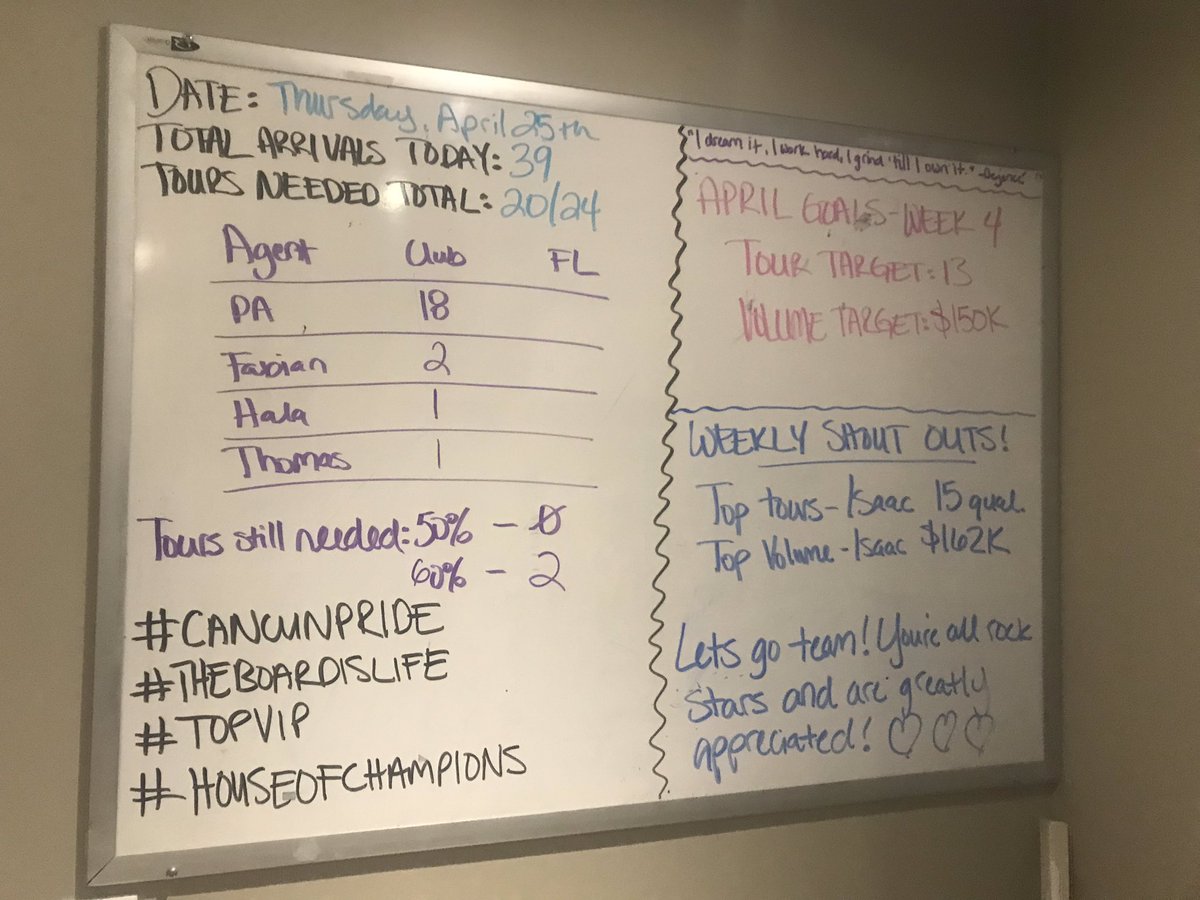 DATE: Thursday, April 25th
TOTAL ARRIVALS TODAY: 39
TOURS NEEDED TOTAL: 20/24
Agent Club FL
PA 18
Fabian 2
Hala 1
Thomas 1
Tours still needed: 50% - 0
60% - 2
#CANCUNPRIDE
#THEBOARDISLIFE
#TOPVIP
#HOUSEOFCHAMPIONS
"I dream it, I work hard, I grind 'till I own it." -Beyoncé
APRIL GOALS - WEEK 4
TOUR TARGET: 13
VOLUME TARGET: $150K
WEEKLY SHOUT OUTS!
Top tours - Isaac 15 qual.
Top Volume - Isaac $162K
Lets go team! You're all rock
stars and are greatly
appreciated!